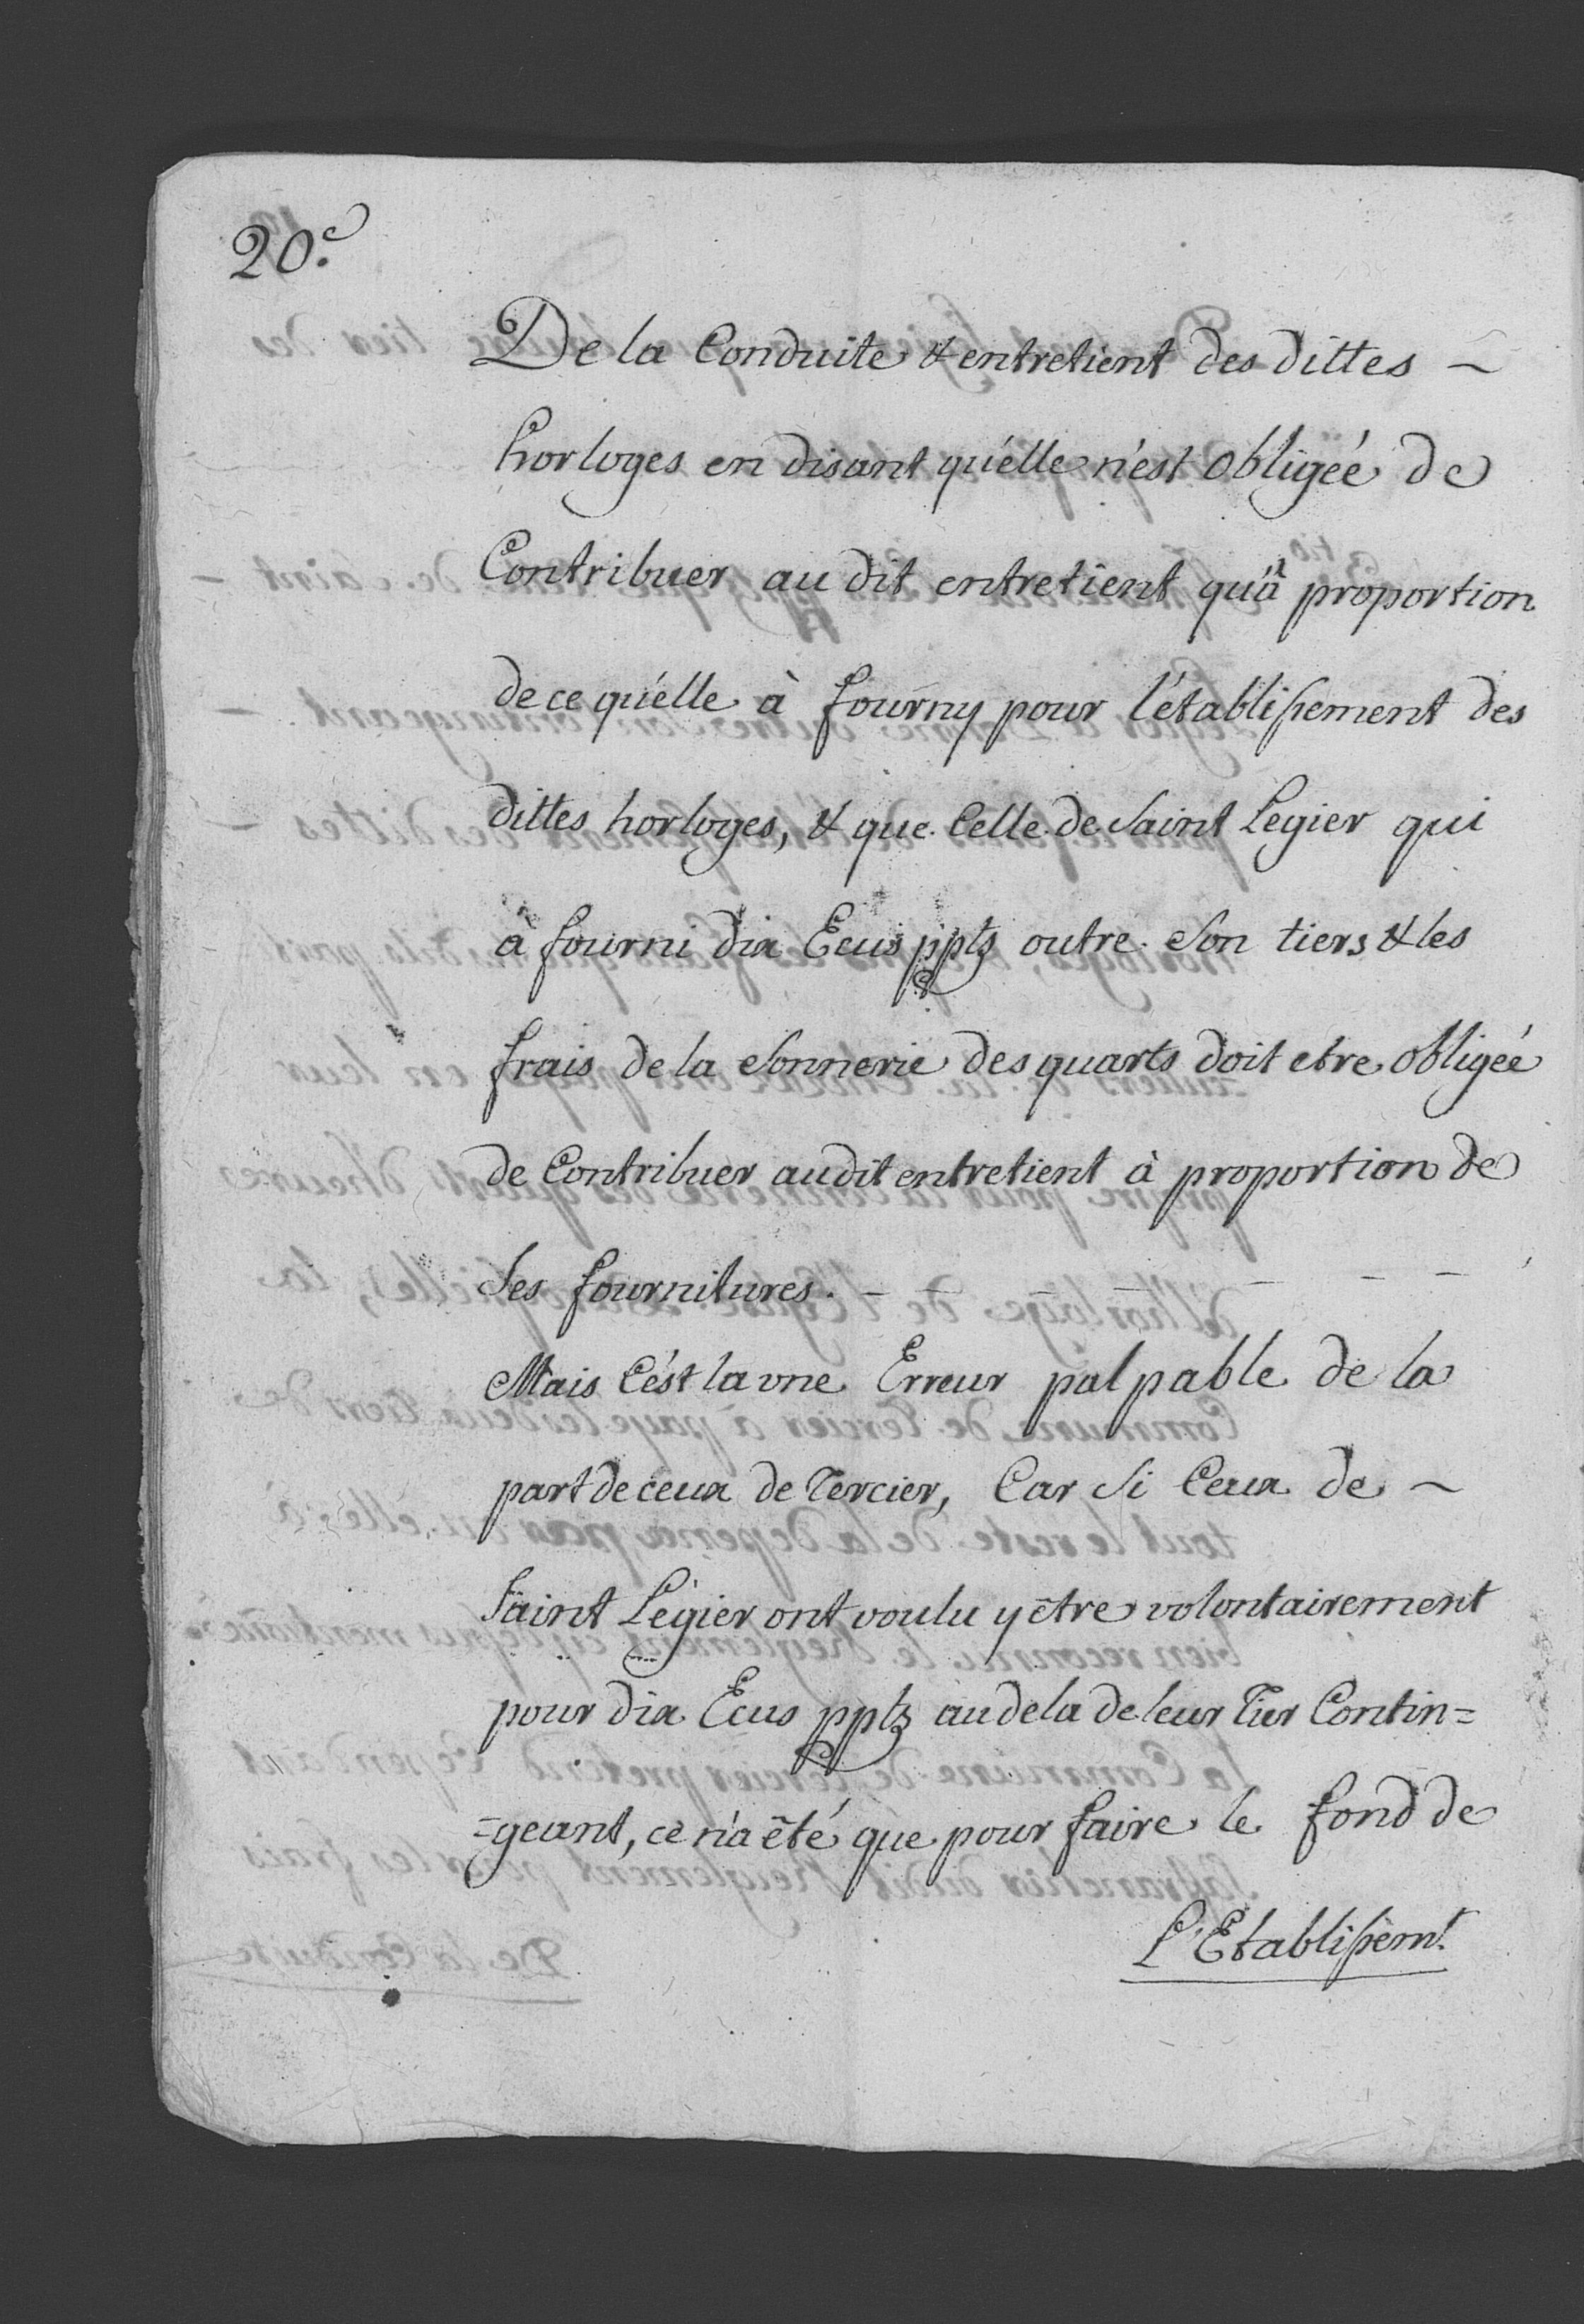 20.e
De la Conduite & entretient des dittes ~
horloges en disant qu'elle n'est obligée de
Contribuer au dit entretient qu'à proportion
de ce qu'elle à fourny pour l'établissement des
dittes horloges, & que Celle de Saint Legier qui
à fourni dix Ecus ppts outre Son tiers & les
frais de la Sonnerie des quarts doit etre obligée
de Contribuer au dit entretient à proportion de
Ses fournitures. - - - - - -
Mais C'est la une Erreur palpable de la
part de ceux de Tercier, Car Si Ceux de ~
Saint Légier ont voulu y être volontairement
pour dix Ecus ppts au dela de leur Tier Contin=
=geant, ce n'a été que pour faire le fond de
L'Etablissemt.